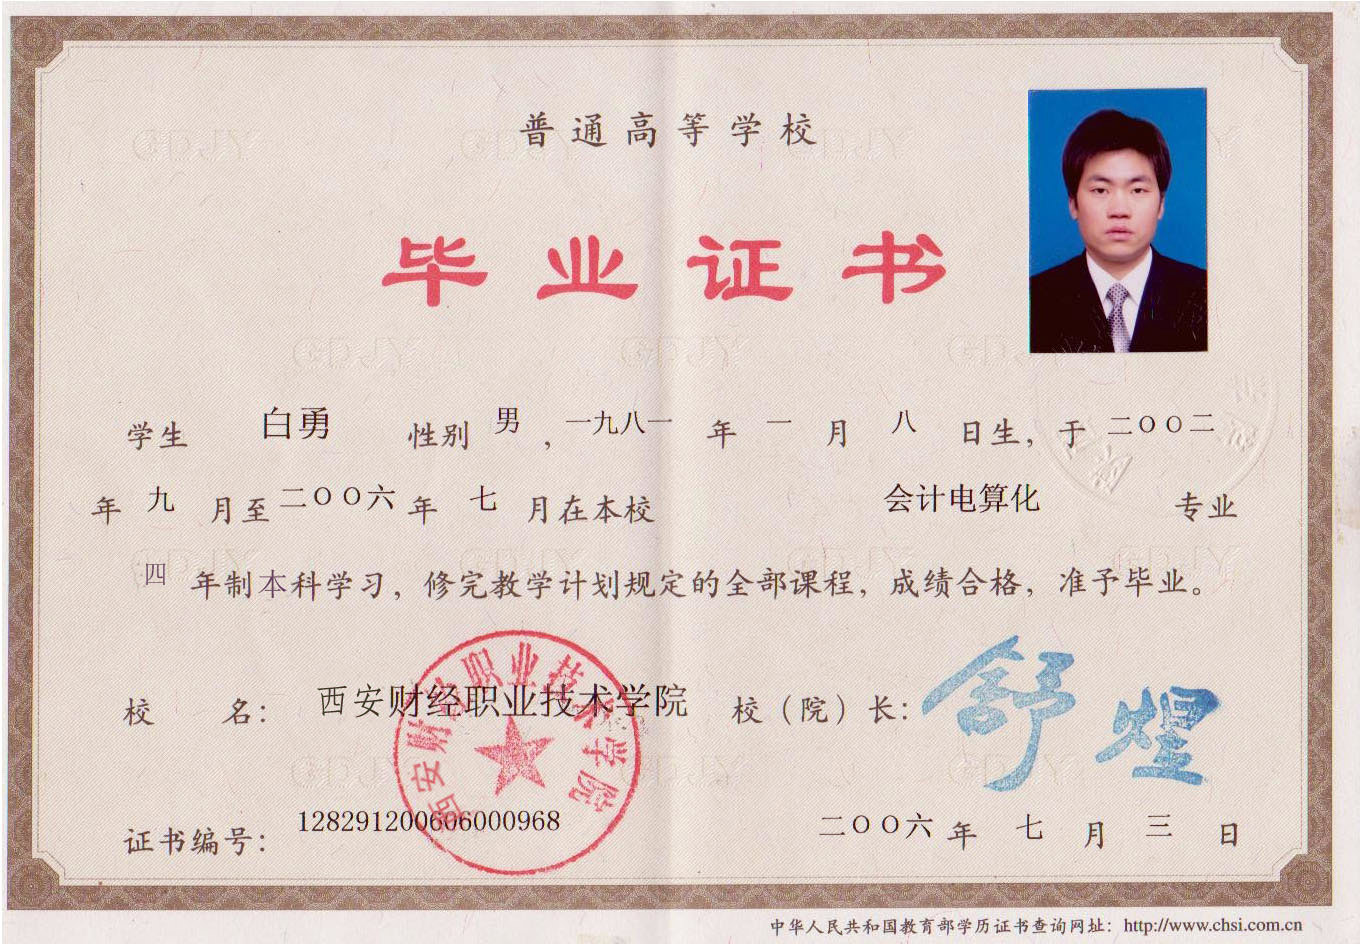 普通高等学校
毕业证书
学生 白勇 性别 男 ，一九八一 年 一 月 八 日生，于 二〇〇二
年 九 月至 二〇〇六 年 七 月在本校 会计电算化 专业
四 年制本科学习，修完教学计划规定的全部课程，成绩合格，准予毕业。
校 名： 西安财经职业技术学院 校（院）长： 舒煋
西安财经职业技术学院
证书编号： 128291200606000968 二〇〇六 年 七 月 三 日
中华人民共和国教育部学历证书查询网址： http://www.chsi.com.cn